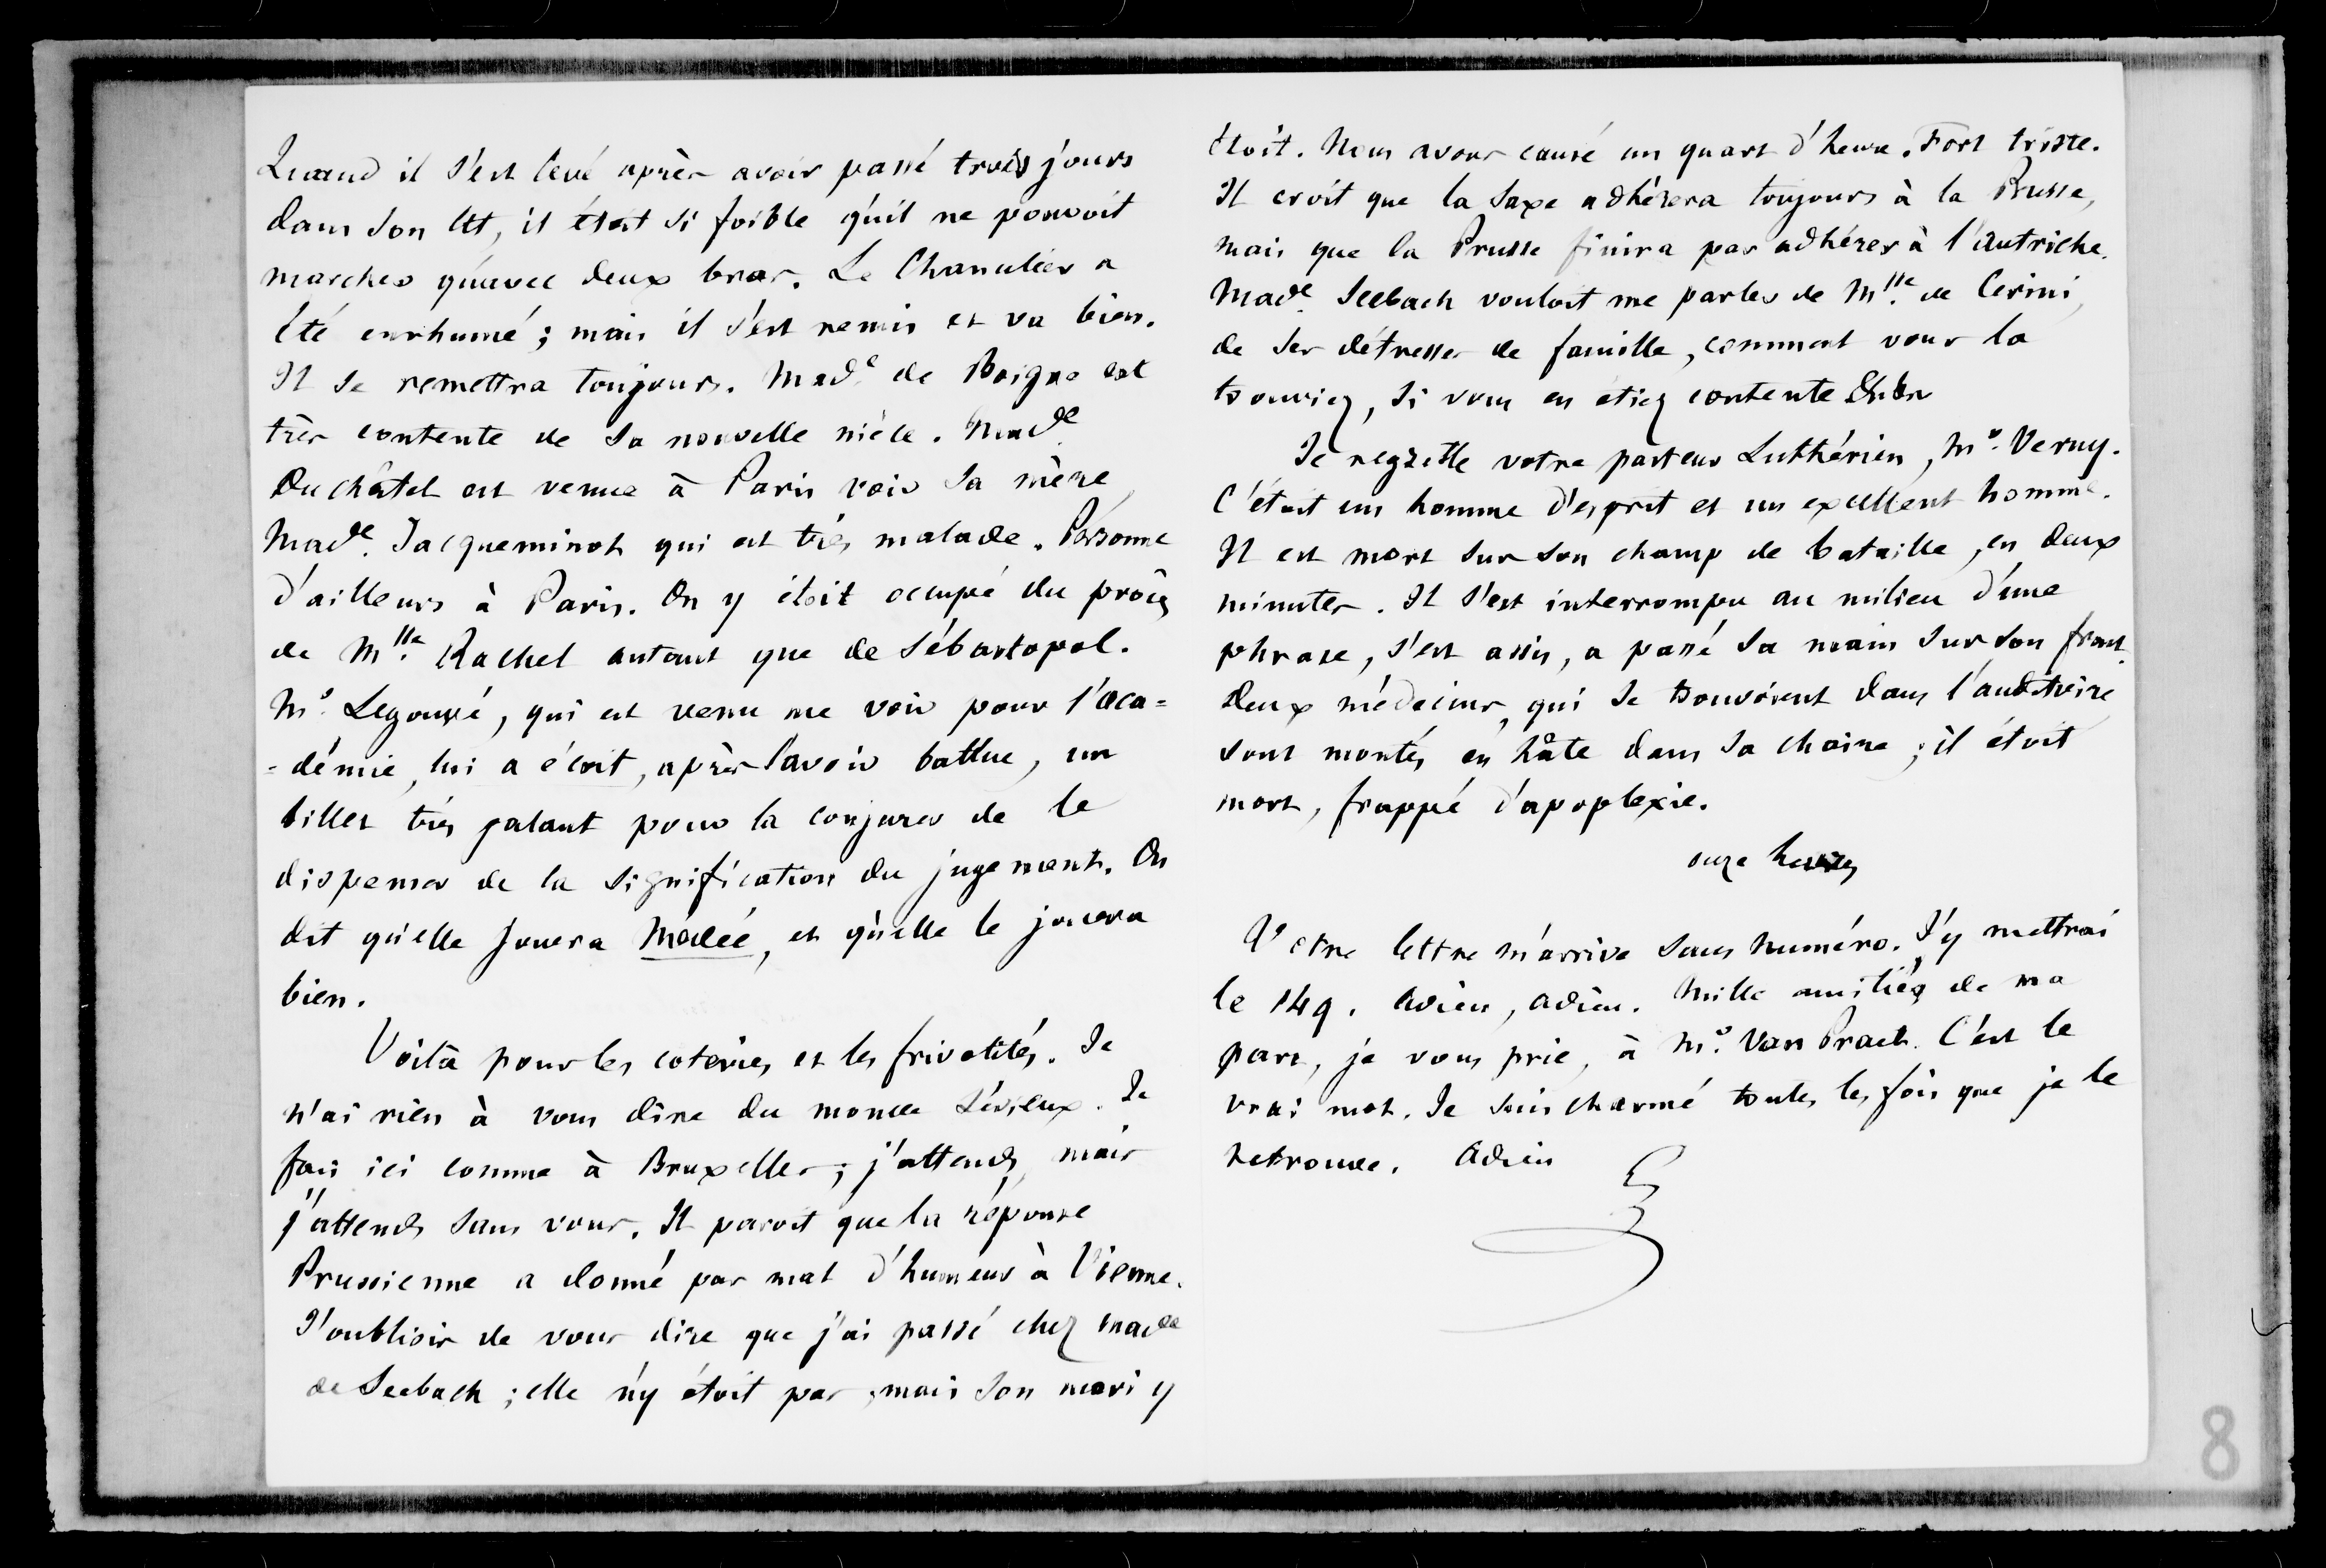 Quand il s'est levé après avoir passé trois jours
dans son lit, il étoit si foible qu'il ne pouvoit
marcher qu'avec deux bras. Le Chancelier a
été enrhumé ; mais il s'est remis et va bien.
Il se remettra toujours. Made de Boigne est
très contente de sa nouvelle nièce. Made
Duchâtel est venue à Paris voir sa mère
Made. Jacqueminot qui est très malade. Personne
d'ailleurs à Paris. On y étoit occupé du procès
de Mlle. Rachel autant que de Sébastopol.
Mr. Legouvé, qui est venu me voir pour l'aca=
=démie, lui a écrit, après l'avoir battue, un
billet très galant pour la conjurer de le
dispenser de la signification du jugement. On
dit qu'elle jouera Médée, et qu'elle le jouera
bien.
Voilà pour les coteries et les frivolités. Je
n'ai rien à vous dire du monde sérieux. Je
fais ici comme à Bruxelles ; j'attends, mais
j'attends sans vous. Il paroit que la réponse
Prussienne a donné pas mal d'humeur à Vienne.
J'oubliois de vous dire que j'ai passé chez Made
de Seebach ; elle n'y étoit pas, mais son mari y
étoit. Nous avons causé un quart d'heure. Fort triste.
Il croit que la Saxe adhérera toujours à la Prusse,
mais que la Prusse finira par adhérer à l'Autriche.
Made. Seebach vouloit me parler de Mlle. de Cerini,
de ses détresses de famille, comment vous la
trouviez, si vous en étiez contente
Je regrette votre pasteur Luthérien, Mr. Verny.
C'étoit un homme d'esprit et un excellent homme.
Il est mort sur son champ de bataille, en deux
minutes. Il s'est interrompu au milieu d'une
phrase, s'est assis, a passé sa main sur son front.
Deux médecins, qui se trouvoient dans l'auditoire
sont montés en hâte dans sa chaire ; il étoit
mort, frappé d'apoplexie.
onze heures
Votre lettre m'arrive sans numéro. J'y mettrai
le 149. Adieu, adieu. Mille amitiés de ma
part, je vous prie, à Mr. Van Praet. C'est le
vrai mot. Je suis charmé toutes les fois que je le
retrouve. Adieu
8